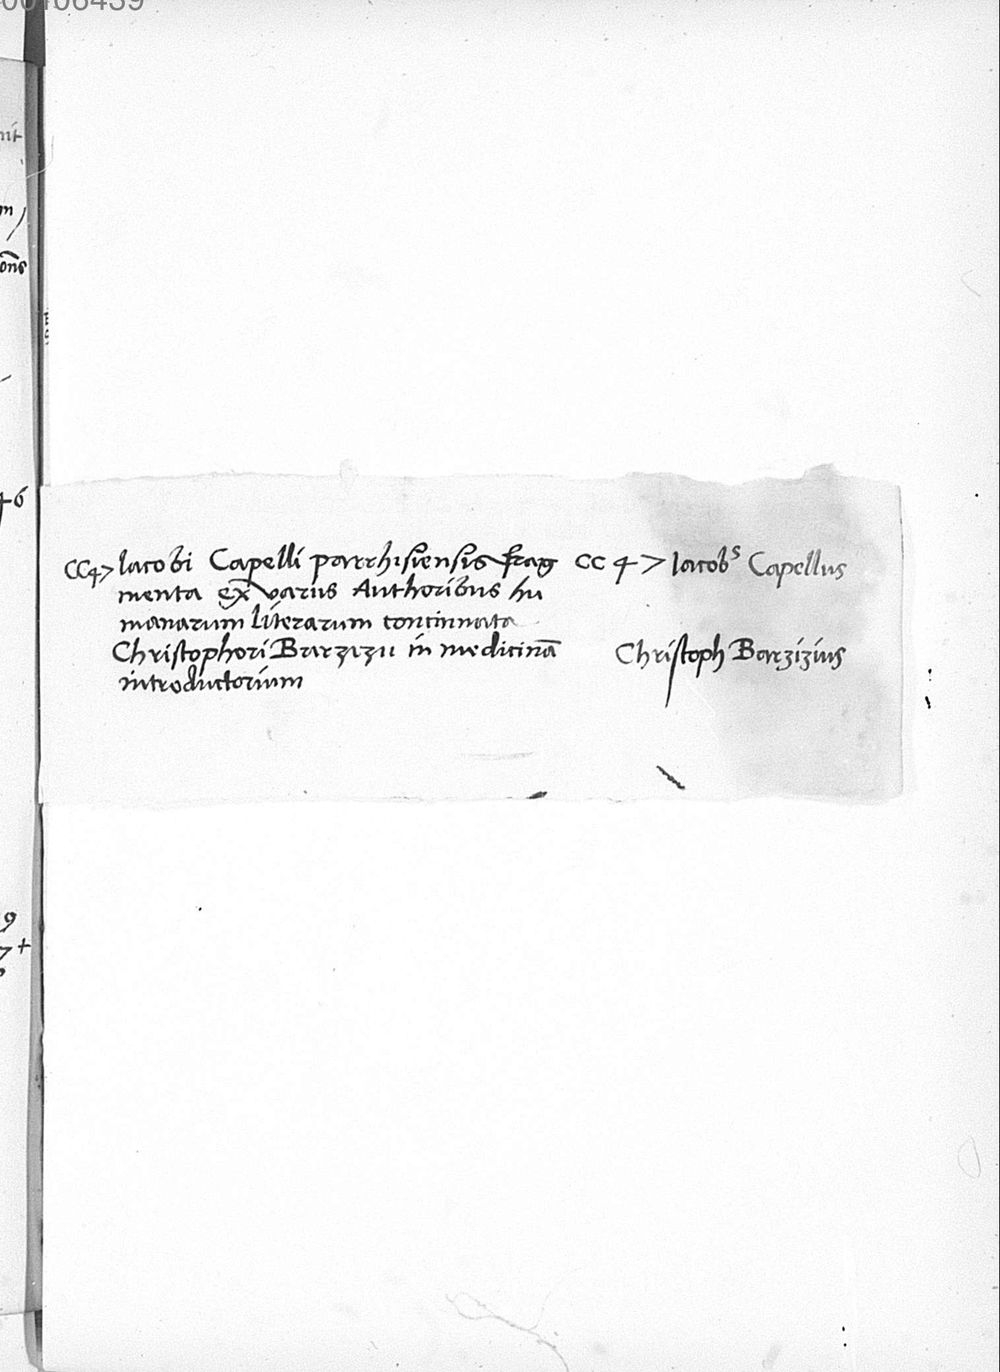 00106439
CC4> Iacobi Capelli parrhisiensis frag
menta ex varijs Authoribus hu
manarum literarum concinnata
Christophori Barzizij in medicinā
introductorium
CC 4 > Iacobˢ Capellus
Christoph Barzizius
46
m
ons
9
7+